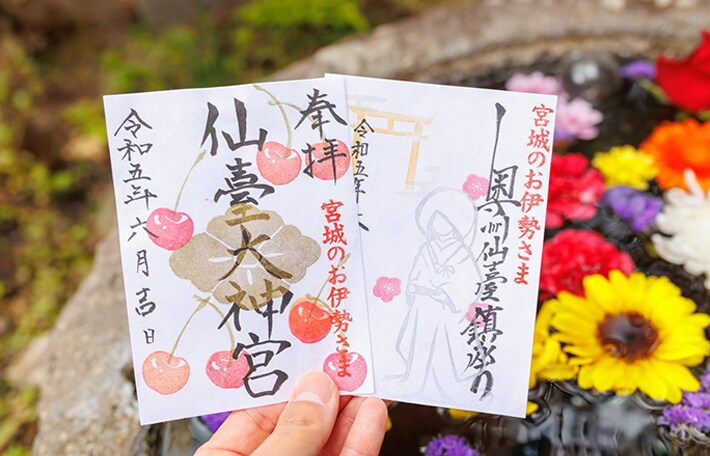 奉拝
宮城のお伊勢さま
仙臺大神宮
令和五年六月吉日
宮城のお伊勢さま
奥州仙臺鎮
令和五年